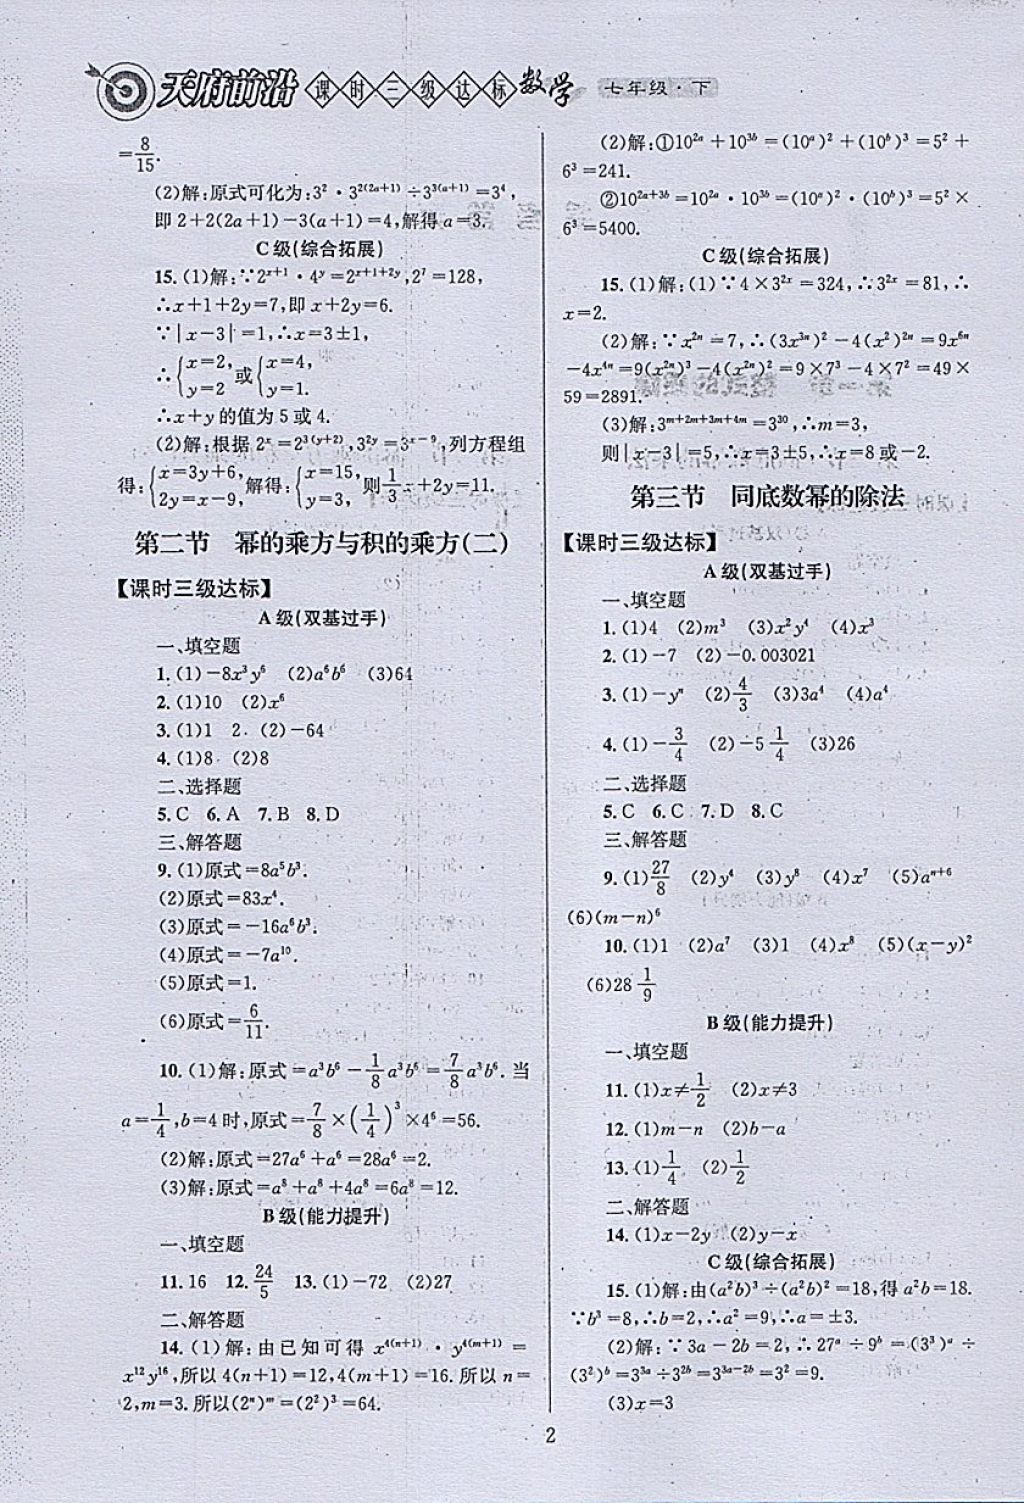 天府前沿 课时三级达标 数学 七年级·下
=8/15.
(2)解:原式可化为:3²·3^{2(2a+1)}÷3^{3(a+1)}=3⁴,
即2+2(2a+1)-3(a+1)=4,解得a=3.
C级(综合拓展)
15.(1)解:∵2^{x+1}·4^y=2^{x+1+2y},2⁷=128,
∴x+1+2y=7,即x+2y=6.
∵|x-3|=1,∴x=3±1,
∴{x=2, y=2 或{x=4, y=1.
∴x+y的值为5或4.
(2)解:根据2^x=2^{3(y+2)},3^{2y}=3^{x-9},列方程组
得:{x=3y+6, 2y=x-9, 解得:{x=15, y=3, 则1/3 x+2y=11.
第二节 幂的乘方与积的乘方(二)
【课时三级达标】
A级(双基过手)
一、填空题
1.(1)-8x³y⁶ (2)a⁶b⁶ (3)64
2.(1)10 (2)x⁶
3.(1)1 2 (2)-64
4.(1)8 (2)8
二、选择题
5.C 6.A 7.B 8.D
三、解答题
9.(1)原式=8a⁵b³.
(2)原式=83x⁴.
(3)原式=-16a⁶b³.
(4)原式=-7a¹⁰.
(5)原式=1.
(6)原式=6/11.
10.(1)解:原式=a³b⁶-1/8 a³b⁶=7/8 a³b⁶.当
a=1/4,b=4时,原式=7/8×(1/4)³×4⁶=56.
(2)解:原式=27a⁶+a⁶=28a⁶=2.
(3)解:原式=a⁸+a⁸+4a⁸=6a⁸=12.
B级(能力提升)
一、填空题
11.16 12.24/5 13.(1)-72 (2)27
二、解答题
14.(1)解:由已知可得x^{4(n+1)}·y^{4(m+1)}=
x¹²y¹⁶,所以4(n+1)=12,4(m+1)=16.所以n=
2,m=3.所以(2ⁿ)ᵐ=(2²)³=64.
(2)解:①10^{2a}+10^{3b}=(10^a)²+(10^b)³=5²+
6³=241.
②10^{2a+3b}=10^{2a}·10^{3b}=(10^a)²·(10^b)³=5²×
6³=5400.
C级(综合拓展)
15.(1)解:(1)∵4×3^{2x}=324,∴3^{2x}=81,∴
x=2.
(2)解:∵x^{2n}=7,∴(3x^{3n})²-4(x²)^{2n}=9x^{6n}
-4x^{4n}=9(x^{2n})³-4(x^{2n})²=9×7³-4×7²=49×
59=2891.
(3)解:3^{m+2m+3m+4m}=3³⁰,∴m=3,
则|x-3|=5,∴x=3±5,∴x=8或-2.
第三节 同底数幂的除法
【课时三级达标】
A级(双基过手)
一、填空题
1.(1)4 (2)m³ (3)x²y⁴ (4)x³
2.(1)-7 (2)-0.003021
3.(1)-yⁿ (2)4/3 (3)3a⁴ (4)a⁴
4.(1)-3/4 (2)-5 1/4 (3)26
二、选择题
5.C 6.C 7.D 8.C
三、解答题
9.(1)27/8 (2)y⁴ (3)y⁸ (4)x⁷ (5)a^{n+6}
(6)(m-n)⁶
10.(1)1 (2)a⁷ (3)1 (4)x⁸ (5)(x-y)²
(6)28 1/9
B级(能力提升)
一、填空题
11.(1)x≠1/2 (2)x≠3
12.(1)m-n (2)b-a
13.(1)1/4 (2)1/2
二、解答题
14.(1)x-2y (2)y-x
C级(综合拓展)
15.(1)解:由(a²b)³÷(a²b)²=18,得a²b=18.
∵b³=8,∴b=2,∴a²=9,∴a=±3.
(2)解:∵3a-2b=2,∴27^a÷9^b=(3³)^a÷
(3²)^b=3^{3a}÷3^{2b}=3^{3a-2b}=3²=9.
(3)x=3
2